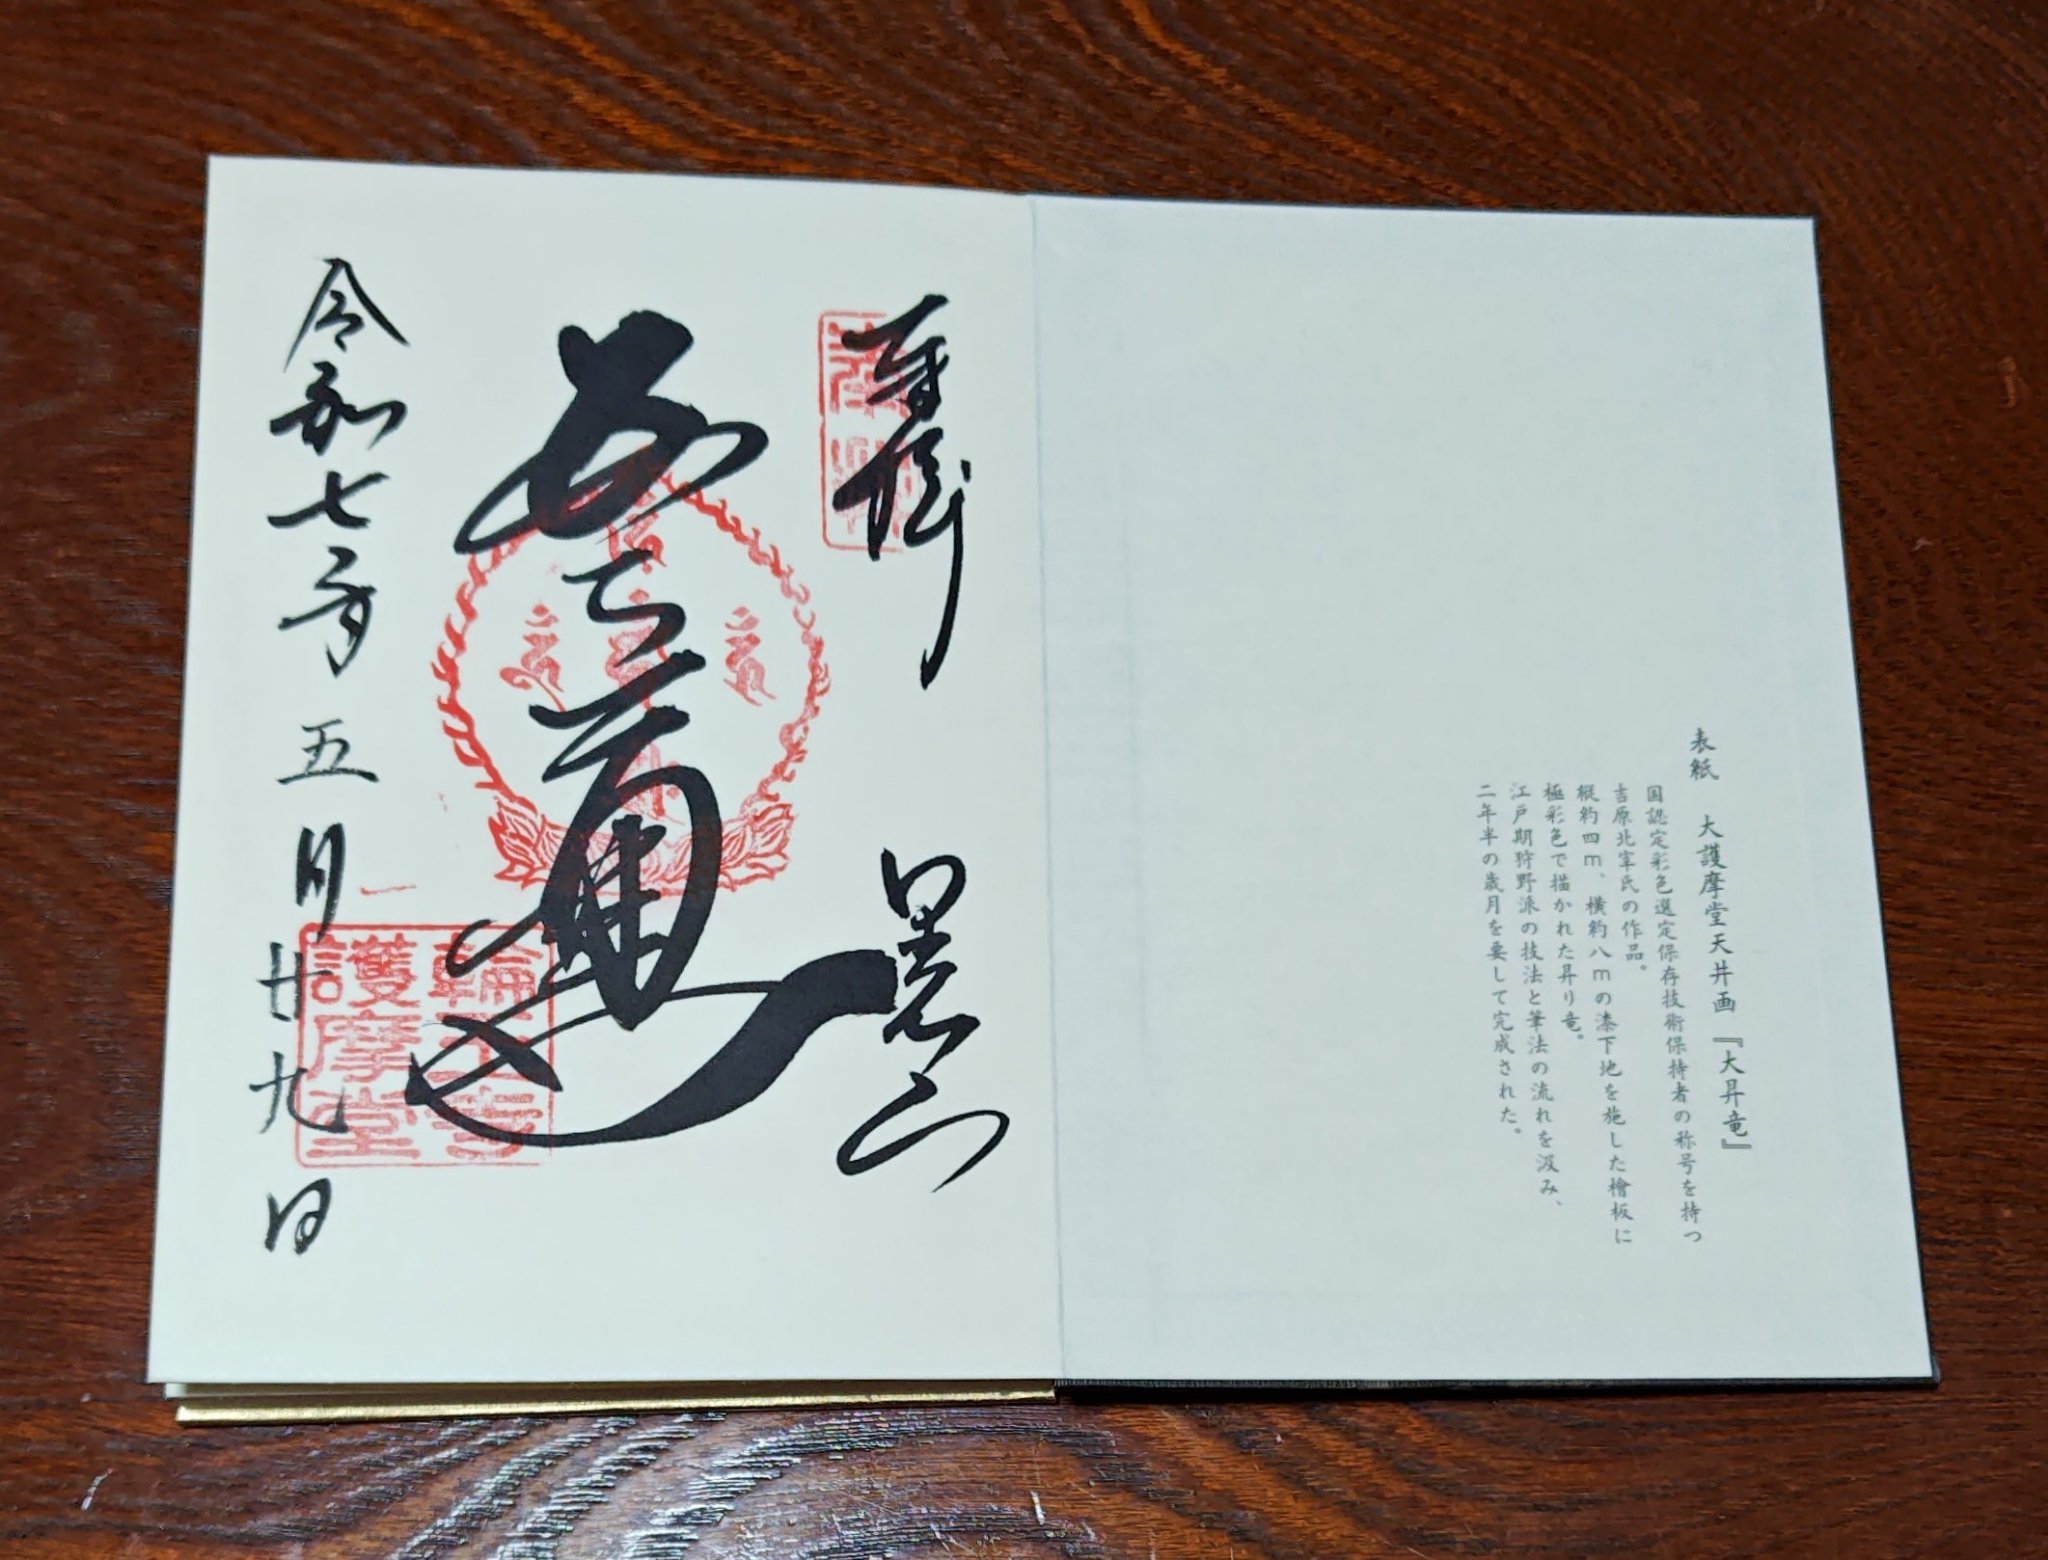 表紙　大護摩堂天井画『大昇竜』
国認定彩色選定保存技術保持者の称号を持つ
吉原北宰氏の作品。
縦約四m、横約八mの漆下地を施した檜板に
極彩色で描かれた昇り竜。
江戸期狩野派の技法と筆法の流れを汲み、
二年半の歳月を要して完成された。
奉拝　日光山
輪王寺
護摩堂
令和七年五月廿九日